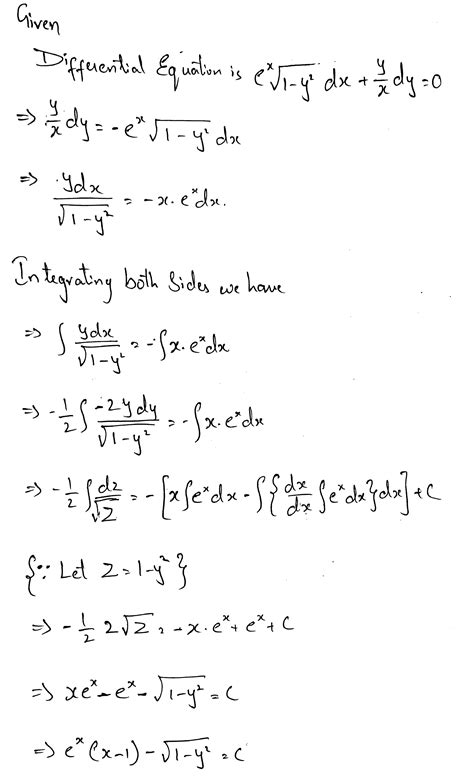 Given
Differential Equation is e^x √(1-y²) dx + y/x dy = 0
⇒ y/x dy = -e^x √(1-y²) dx
⇒ ydx/√(1-y²) = -x.e^x dx.
Integrating both sides we have
⇒ ∫ ydx/√(1-y²) = -∫x.e^x dx
⇒ -1/2 ∫ -2ydy/√(1-y²) = -∫x.e^x dx
⇒ -1/2 ∫ dz/√z = -[x∫e^x dx - ∫{dx/dx ∫e^x dx}dx] + C
{∵ Let z = 1-y²}
⇒ -1/2 2√z = -x.e^x + e^x + C
⇒ xe^x - e^x - √(1-y²) = C
⇒ e^x (x-1) - √(1-y²) = C